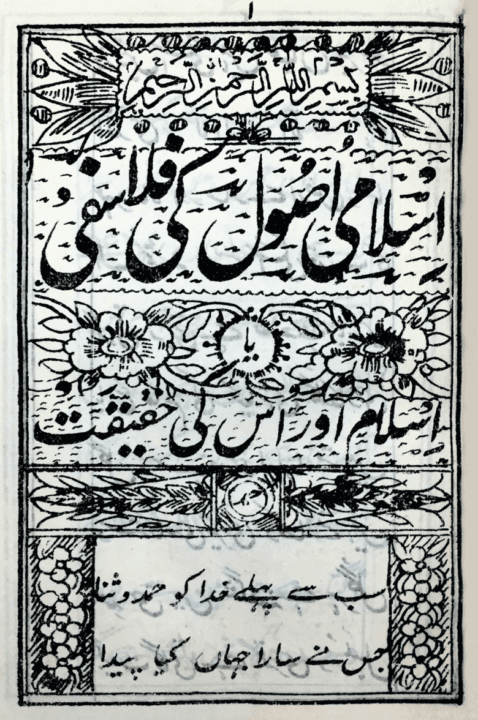 ۱
بسم اللہ الرحمن الرحیم
اسلامی اصول کی فلاسفی
یا
اسلام اور اس کی حقیقت
سب سے پہلے خدا کو حمد و ثنا
جس نے سارا جہاں کیا پیدا